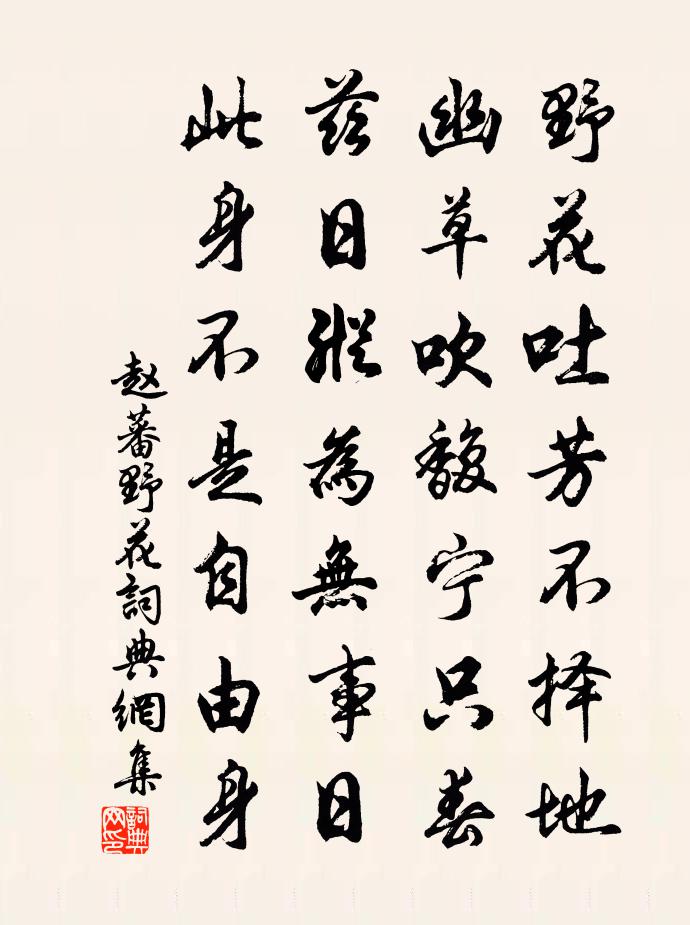 野花吐芳不择地
幽草吹馥宁只春
兹日縱為無事日
此身不是自由身
赵蕃野花詞典網集
詞典
网印